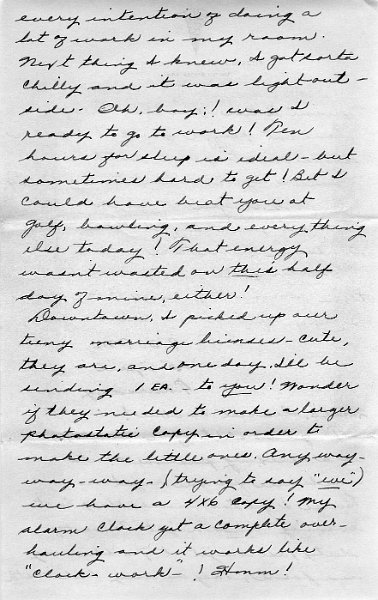 every intention of doing a
lot of work in my room.
Next thing I knew, I got sorta
chilly and it was light out-
side. Oh, boy! was I
ready to go to work! Ten
hours for sleep is ideal - but
sometimes hard to get! Bet I
could have beat you at
golf, bowling, and everything
else today! That energy
wasn't wasted on this half
day of mine, either!
Downtown, I picked up our
teeny marriage licenses - cute,
they are, and one day, I'll be
sending 1 EA. - to you! Wonder
if they needed to make a larger
photostatic copy in order to
make the little ones. Any way-
way - way - (trying to say "we")
we have a 4x6 copy! My
alarm clock got a complete over-
hauling and it works like
"clock-work-"! Hmmm!